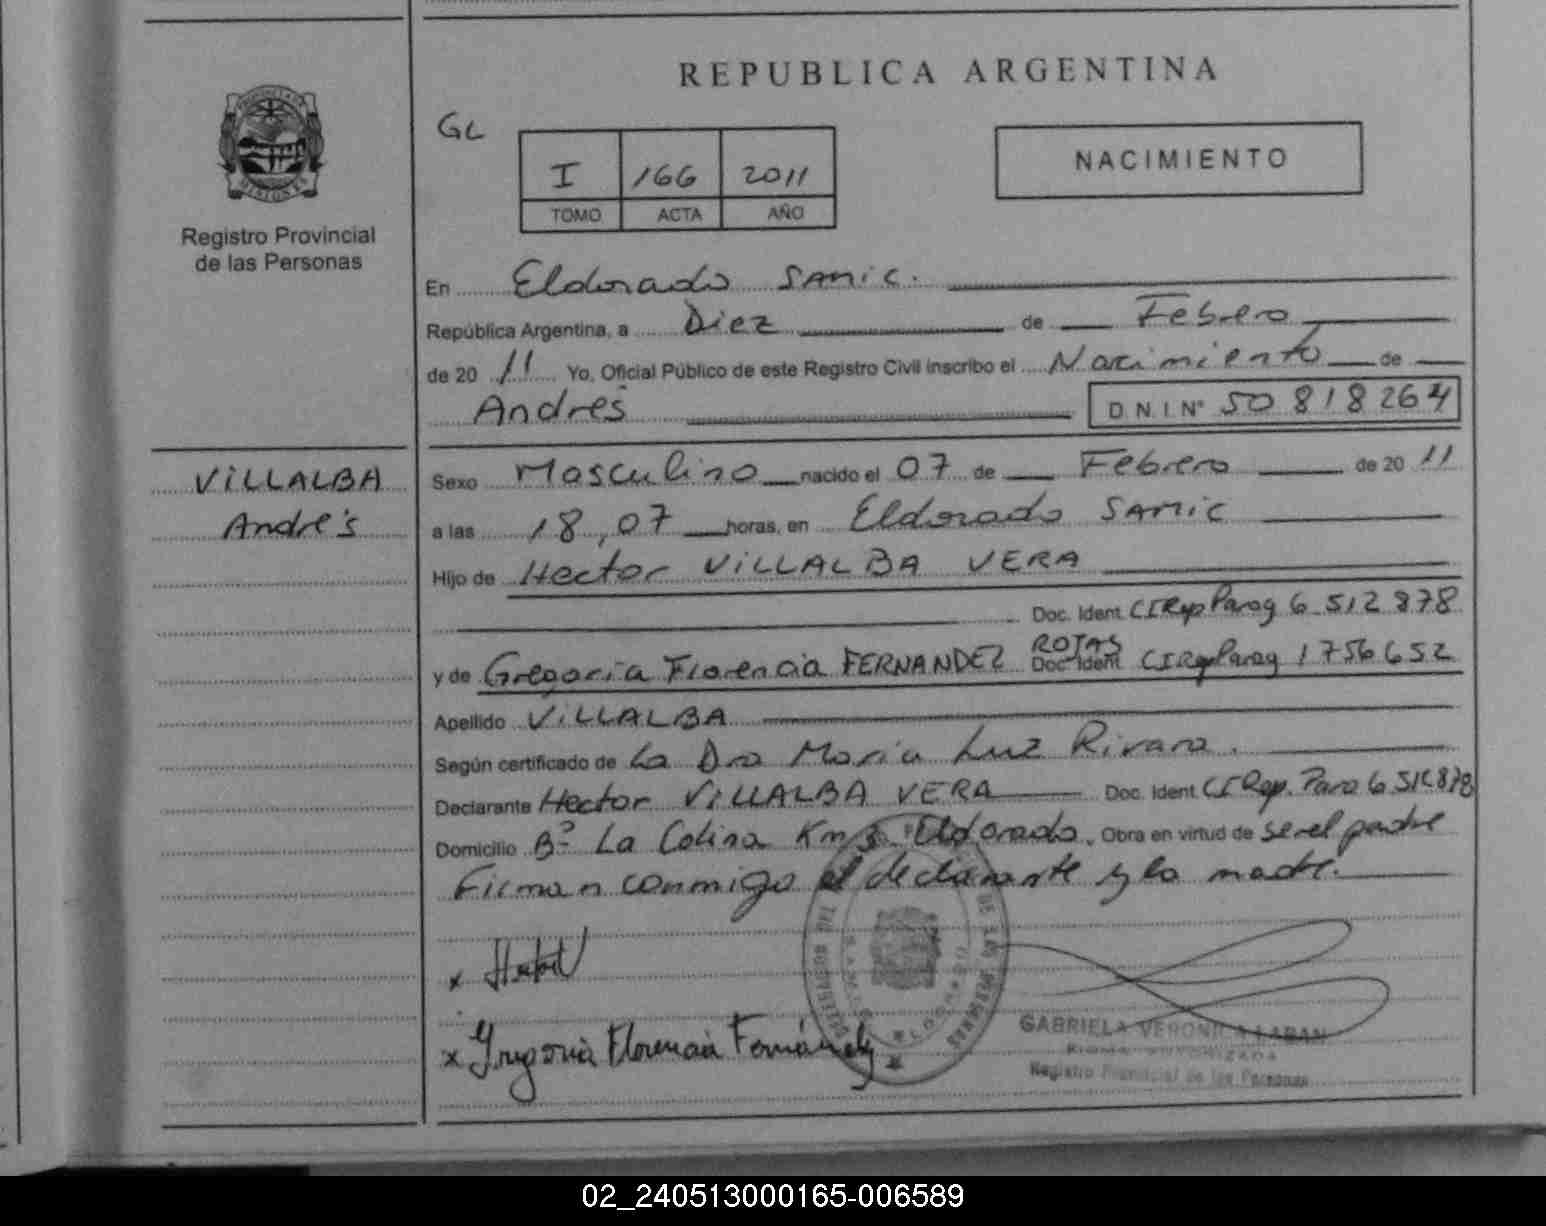 REPUBLICA ARGENTINA
GL
I 166 2011
TOMO ACTA AÑO
NACIMIENTO
Registro Provincial
de las Personas
En Eldorado SAMIC.
República Argentina, a Diez de Febrero
de 20 11 Yo, Oficial Público de este Registro Civil inscribo el Nacimiento de
Andrés
D.N.I. Nº 50 818 264
VILLALBA
Andrés
Sexo Masculino nacido el 07 de Febrero de 20 11
a las 18,07 horas, en Eldorado SAMIC
Hijo de Hector VILLALBA VERA
Doc. Ident. CIRep Parag 6 512 878
y de Gregoria Florencia FERNANDEZ ROJAS Doc. Ident. CIRepParag 1756652
Apellido VILLALBA
Según certificado de La Dra Maria Luz Rivara.
Declarante Hector VILLALBA VERA Doc. Ident. CI Rep. Para 6 512 878
Domicilio Bº La Colina Km Eldorado. Obra en virtud de ser el padre
Firman conmigo el declarante y la madre.
x
x Gregoria Florencia Fernández
DE LAS PERSONAS
SAMIC
ELDORADO
GABRIELA VERONICA LABAN
FIRMA AUTORIZADA
Registro Provincial de las Personas
02_240513000165-006589